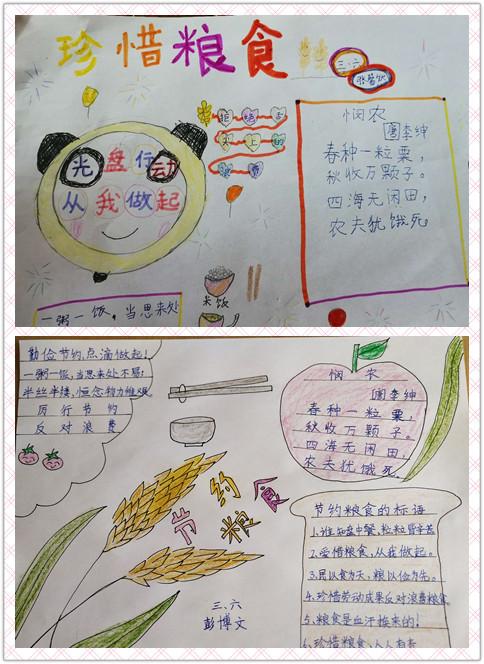 珍惜粮食
三、六
光盘行动
从我做起
拒绝舌
尖上的
浪费
悯农
李绅
春种一粒粟,
秋收万颗子。
四海无闲田,
农夫犹饿死
米饭
一粥一饭,当思来处
勤俭节约,点滴做起!
一粥一饭,当思来处不易;
半丝半缕,恒念物力维艰。
厉行节约
反对浪费
悯农
李绅
春种一粒粟,
秋收万颗子。
四海无闲田,
农夫犹饿死.
节约
粮食
节约粮食的标语
1.谁知盘中餐,粒粒皆辛苦
2.爱惜粮食,从我做起。
3.民以食为天,粮以俭为先。
4.珍惜劳动成果反对浪费粮食
5.粮食是血汗换来的!
6.珍惜粮食,人人有责
三、六
彭博文